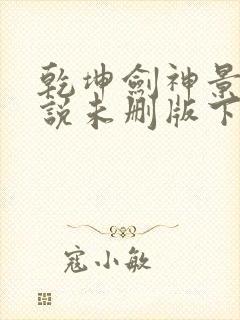 乾坤劍神景
說未刪版下
寇小敏